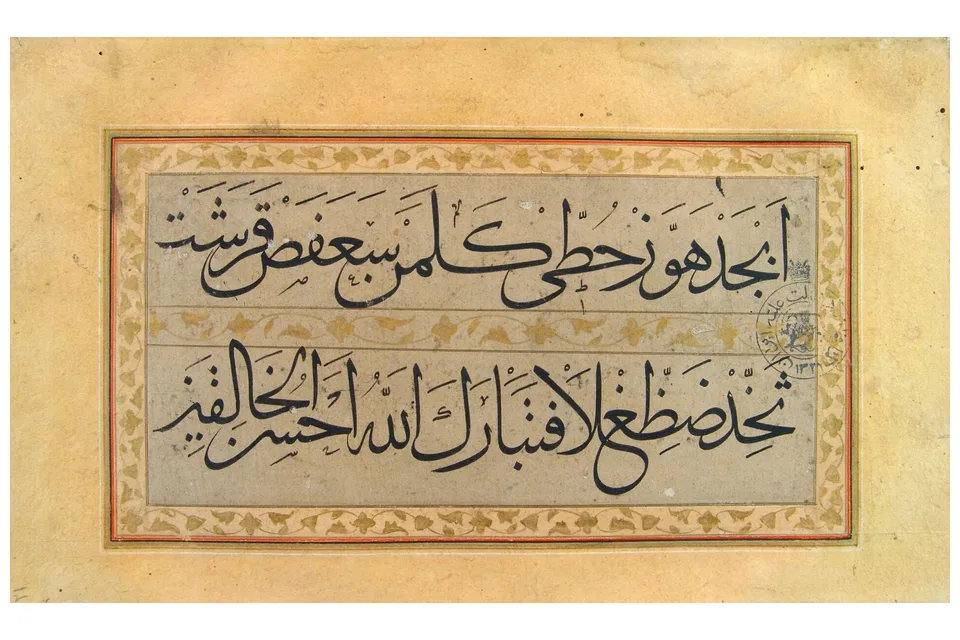 اَبْجَدْ هَوَّزْ حُطِّي كَلَمَنْ سَعَفَصْ قَرَشَتْ
ثَخَّذْ ضَظِّغْ لَا فَتَبَارَكَ اللَّهُ اَحْسَنُ الْخَالِقِينَ